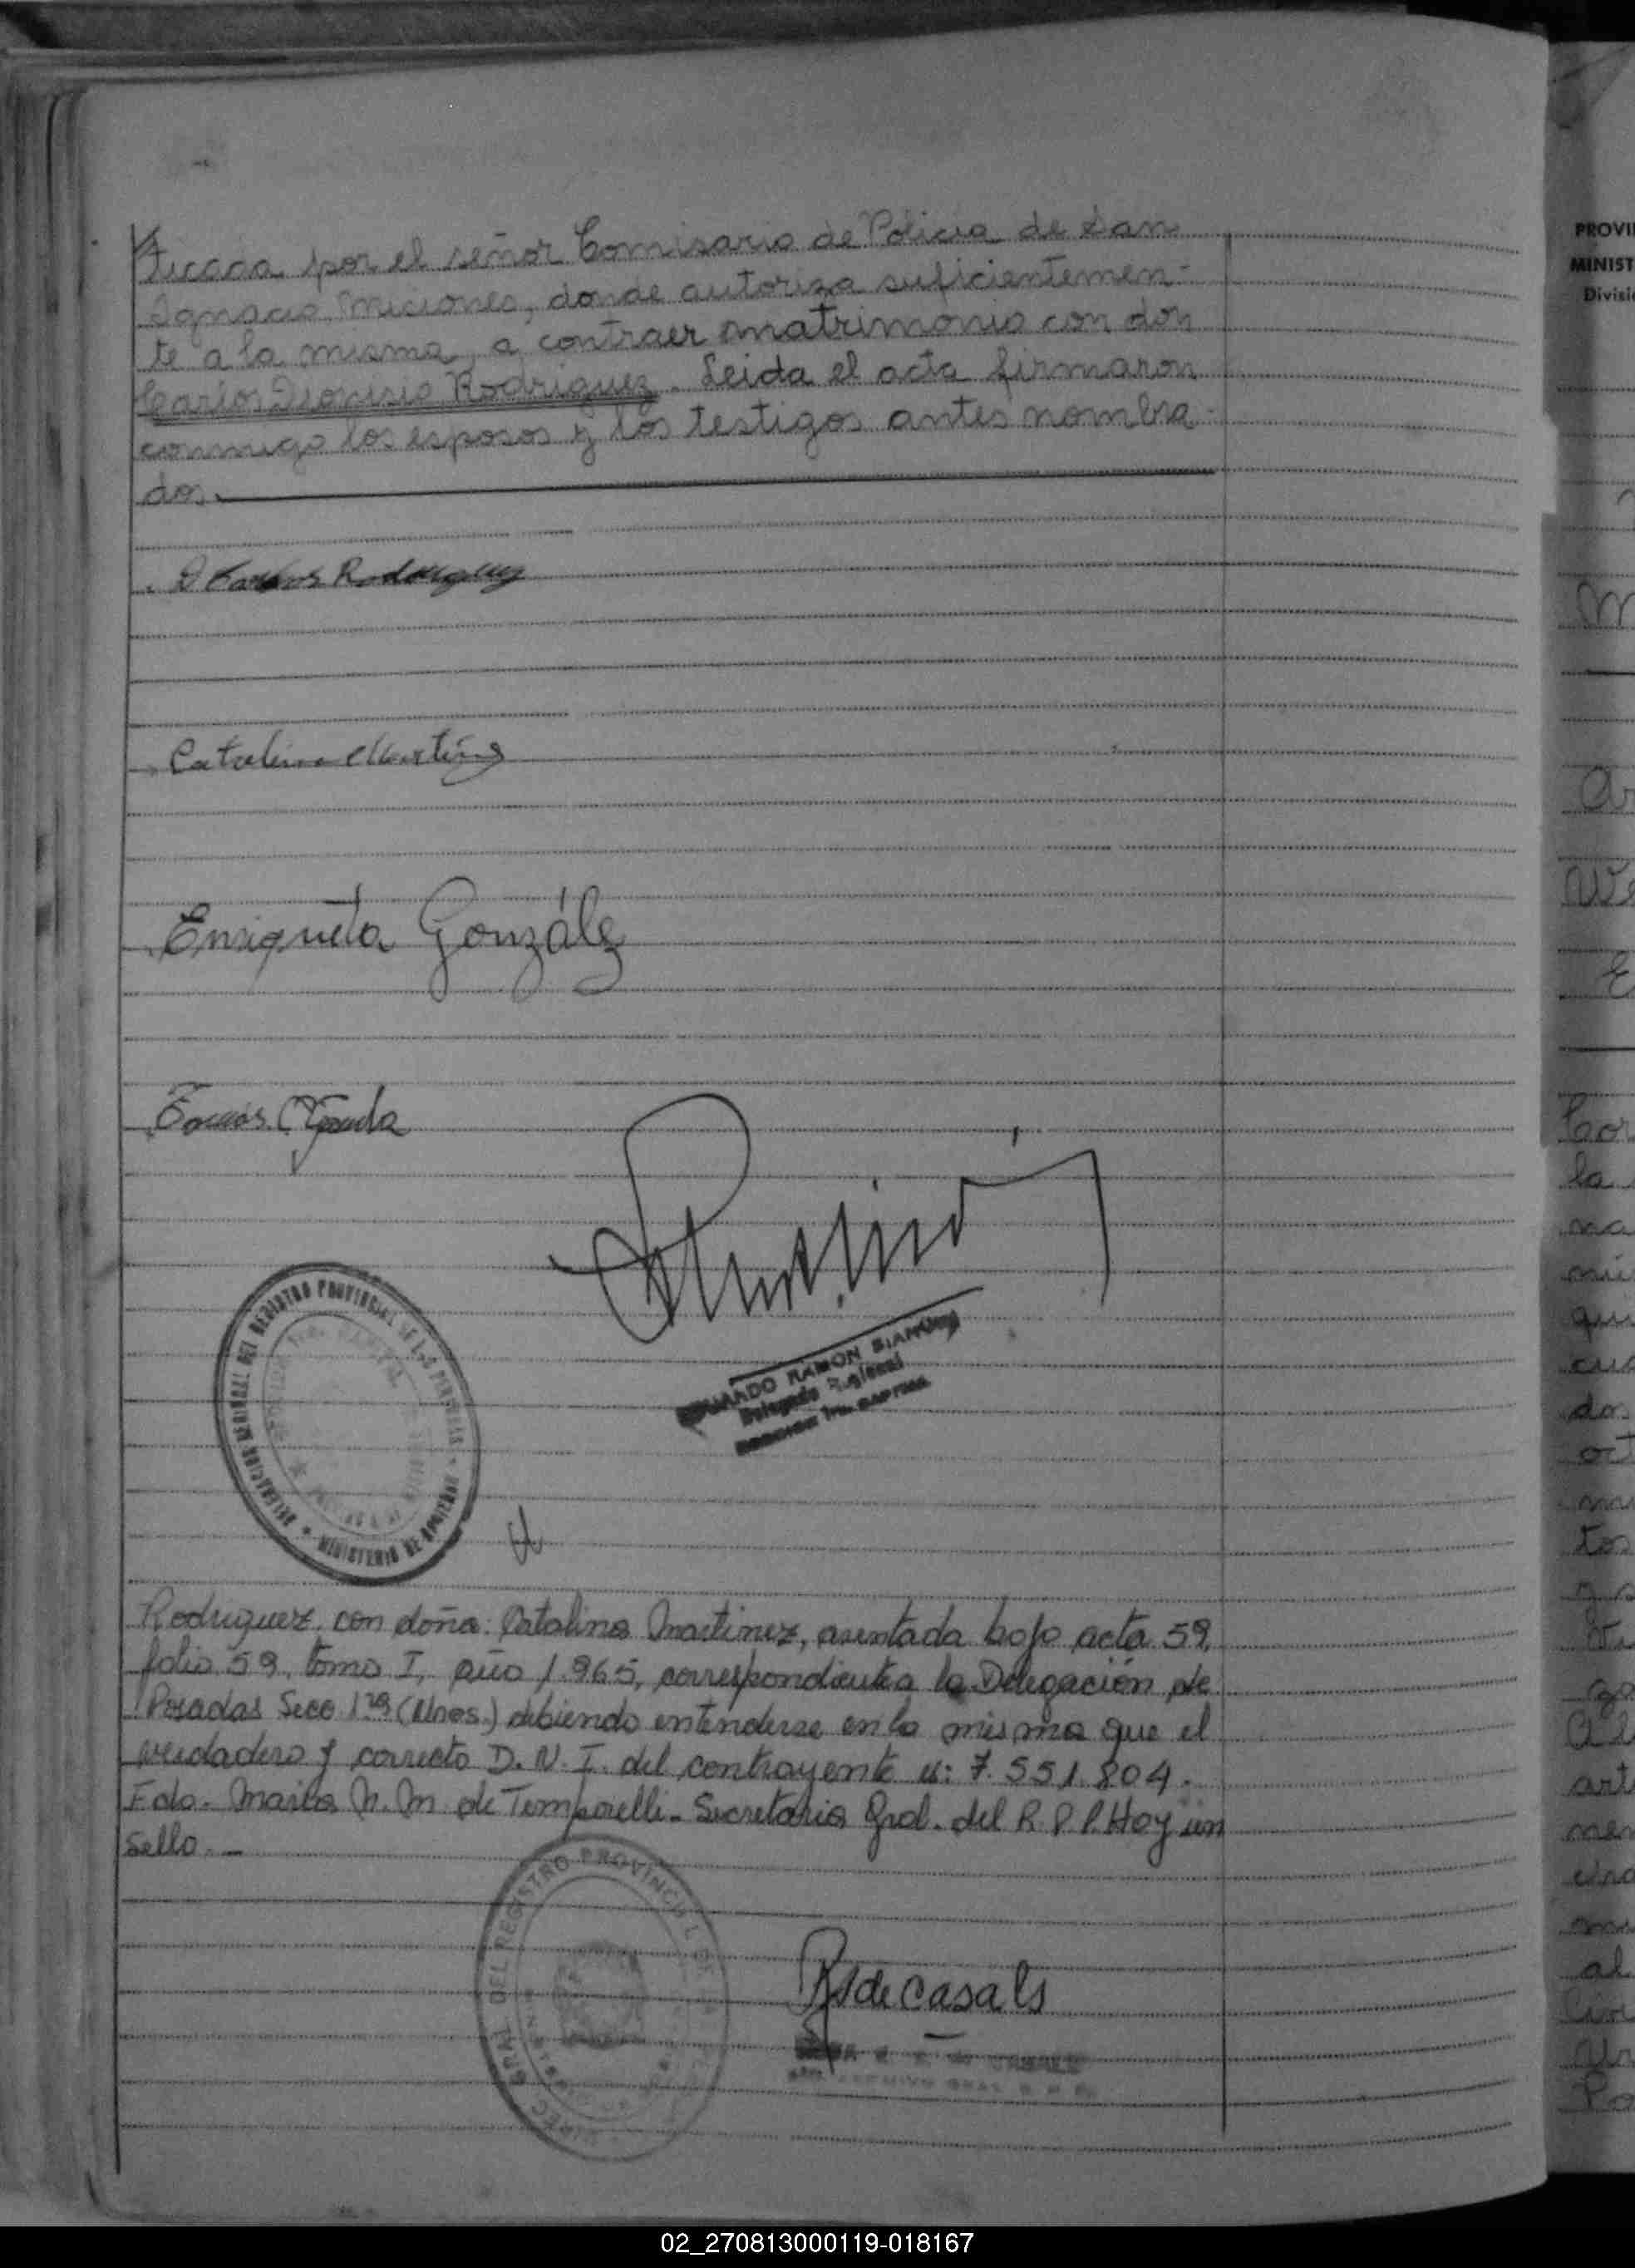 ficada por el señor Comisario de Policia de San
Ignacio Misiones, donde autoriza suficientemen-
te a la misma, a contraer matrimonio con don
Carlos Dionisio Rodriguez. Leida el acta firmaron
conmigo los esposos y los testigos antes nombra-
dos.
D Carlos Rodriguez
Catalina Martínez
Enriqueta González
DEL REGISTRO PROVINCIAL DE LAS PERSONAS
MINISTERIO DE
EDUARDO RAMON
Delegado Regional
Rodriguez, con doña: Catalina Martinez, asentada bajo acta 59,
folio 59, tomo I, año 1.965, correspondiente a la Delegación de
Posadas Secc. 1ra (Mnes.) debiendo entenderse en la misma que el
verdadero y correcto D. N. I. del contrayente es: 7.551.804.
Fdo. Marta N. M. de Temporelli - Secretaria Gral. del R. P. P. Hay un
sello.-
GRAL DEL REGISTRO PROVINCIAL DE
de Casals
PROVI
MINIST
Divisi
02_270813000119-018167